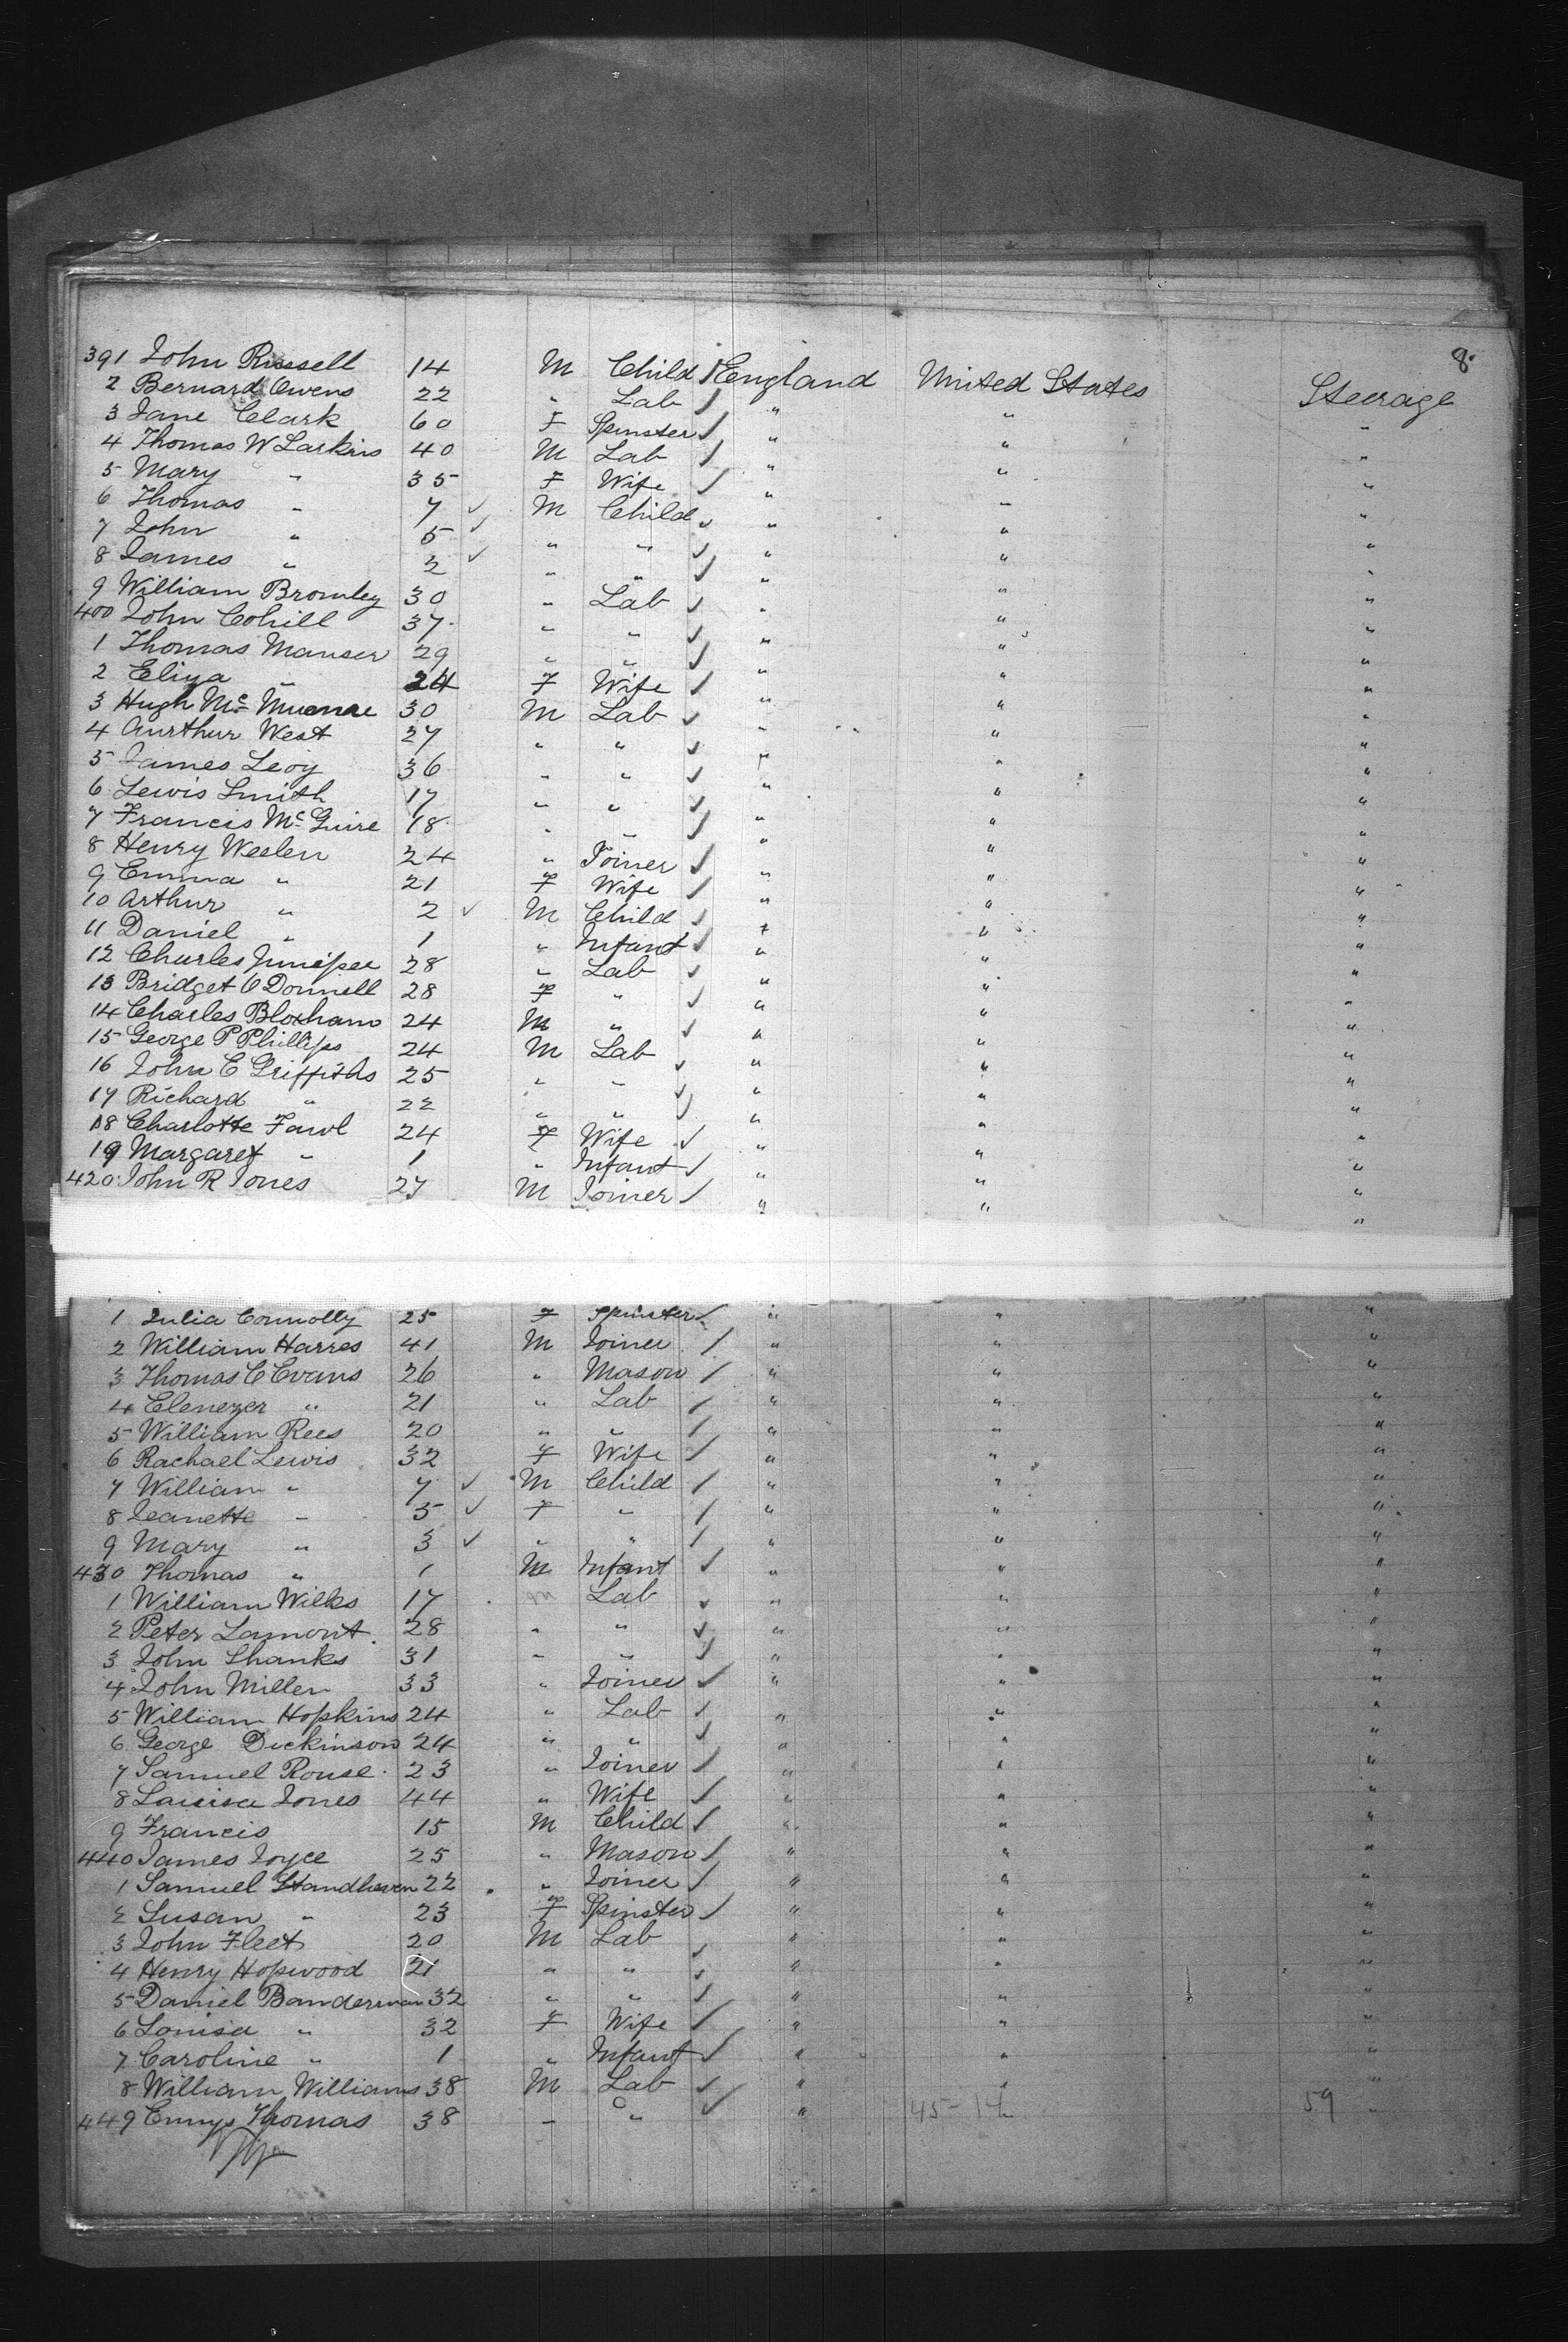 8.
391 John Russell 14 M Child England United States Steerage
2 Bernard Owens 22 " Lab " " "
3 Jane Clark 60 F Spinster " " "
4 Thomas W Larkins 40 M Lab " " "
5 Mary " 35 F Wife " " "
6 Thomas " 7 M Child " " "
7 John " 5 " " " " "
8 James " 2 " " " " "
9 William Bromley 30 " Lab " " "
400 John Cohill 37 " " " " "
1 Thomas Manser 29 " " " " "
2 Eliza " 24 F Wife " " "
3 Hugh Mc 30 M Lab " " "
4 Aurthur West 27 " " " " "
5 James Levy 36 " " " " "
6 Lewis Smith 17 " " " " "
7 Francis McGuire 18 " " " " "
8 Henry Weelen 24 " Joiner " " "
9 Emma " 21 F Wife " " "
10 Arthur " 2 M Child " " "
11 Daniel " 1 " Infant " " "
12 Charles 28 " Lab " " "
13 Bridget O Donnell 28 F " " " "
14 Charles Bloxham 24 M " " " "
15 George P Phillips 24 M Lab " " "
16 John E Griffiths 25 " " " " "
17 Richard " 22 " " " " "
18 Charlotte Fawl 24 F Wife " " "
19 Margaret " 1 " Infant " " "
420 John R Jones 27 M Joiner " " "
1 Julia Connolly 25 F Spinster " " "
2 William Harres 41 M Joiner " " "
3 Thomas C Evans 26 " Mason " " "
4 Ebenezer " 21 " Lab " " "
5 William Rees 20 " " " " "
6 Rachael Lewis 32 F Wife " " "
7 William " 7 M Child " " "
8 Jeanette " 5 F " " " "
9 Mary " 3 " " " " "
430 Thomas " 1 M Infant " " "
1 William Wilks 17 M Lab " " "
2 Peter Lamont 28 " " " " "
3 John Shanks 31 " " " " "
4 John Miller 33 " Joiner " " "
5 William Hopkins 24 " Lab " " "
6 George Dickinson 24 " " " " "
7 Samuel Rouse 23 " Joiner " " "
8 Louisa Jones 44 " Wife " " "
9 Francis 15 M Child " " "
440 James Joyce 25 " Mason " " "
1 Samuel Standhaven 22 " Joiner " " "
2 Susan " 23 F Spinster " " "
3 John Fleet 20 M Lab " " "
4 Henry Hopwood 21 " " " " "
5 Daniel Banderman 32 " " " " "
6 Louisa " 32 F Wife " " "
7 Caroline " 1 " Infant " " "
8 William Williams 38 M Lab " " "
449 Thomas 38 " " " 45-14 59 "